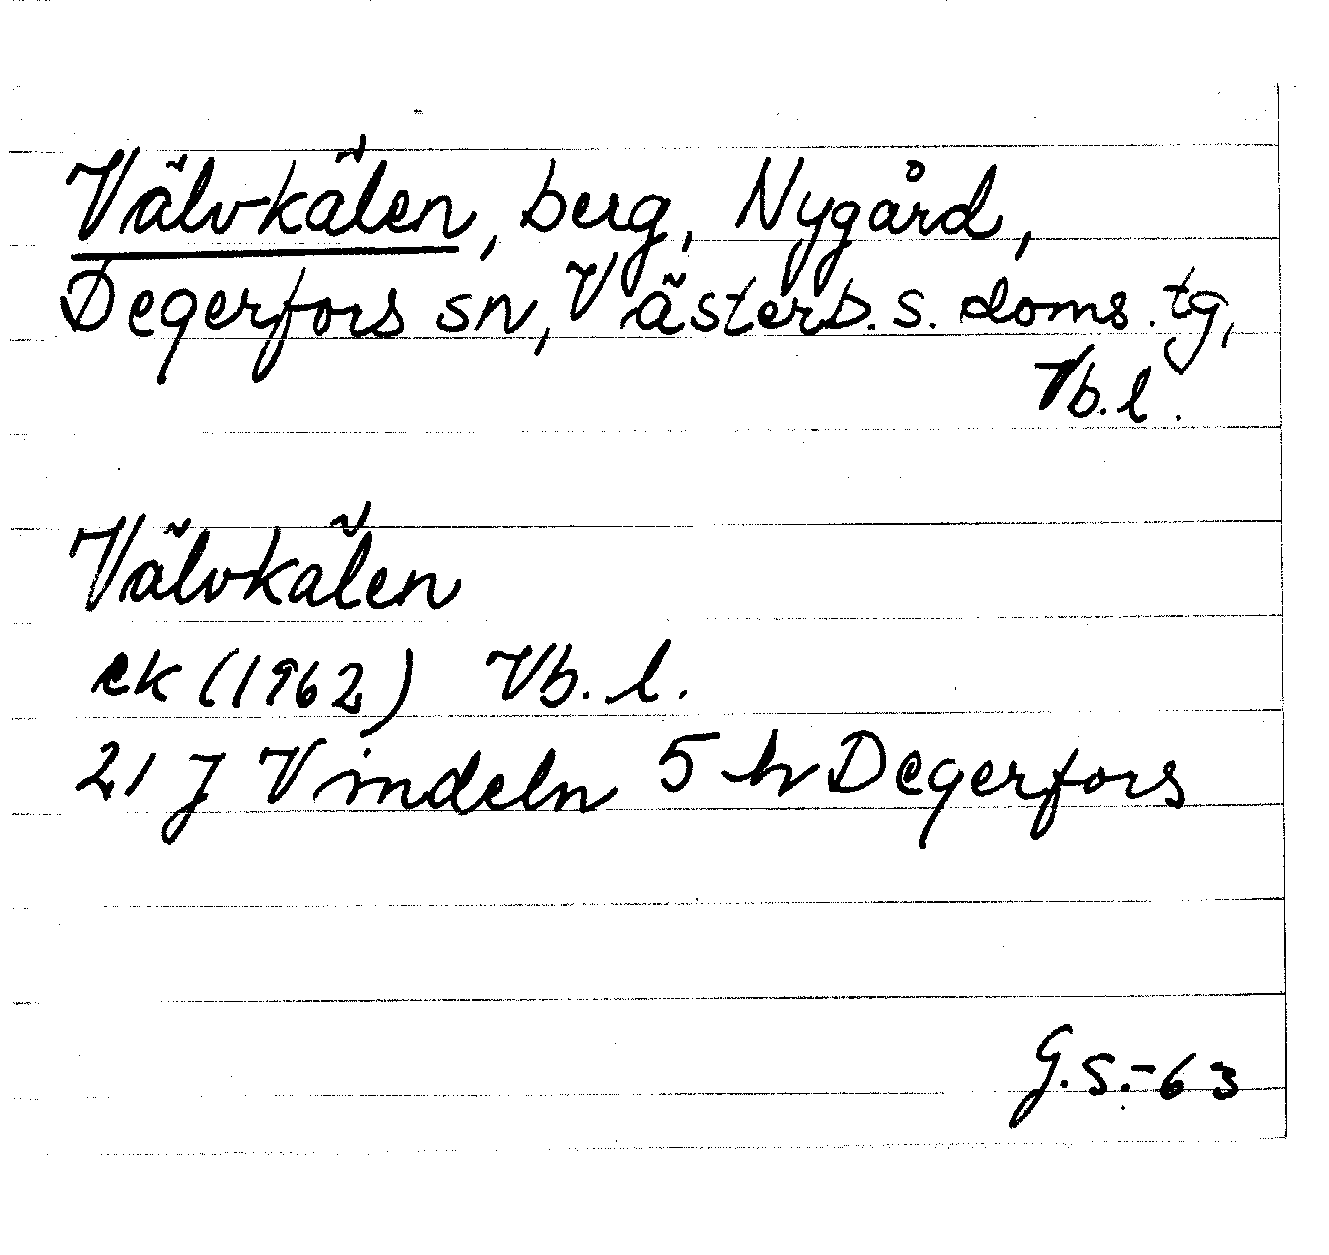 Välvkälen, berg, Nygård,
Degerfors sn, Västerb. s. doms. tg,
Vb. l.
Välvkälen
ek (1962) Vb. l.
21 J Vindeln 5 h Degerfors
G.S.-63